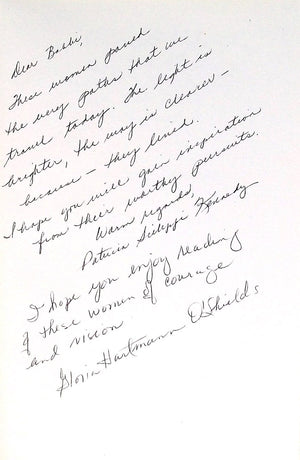 Dear Bobbi,
These women paved
the very paths that we
travel today. The light is
brighter, the way is clearer –
because – they lived.
I hope you will gain inspiration
from their worthy pursuits.
Warm regards,
Patricia Kennedy
I hope you enjoy reading
of these women of courage
and vision
Gloria Hartmann O'Shields